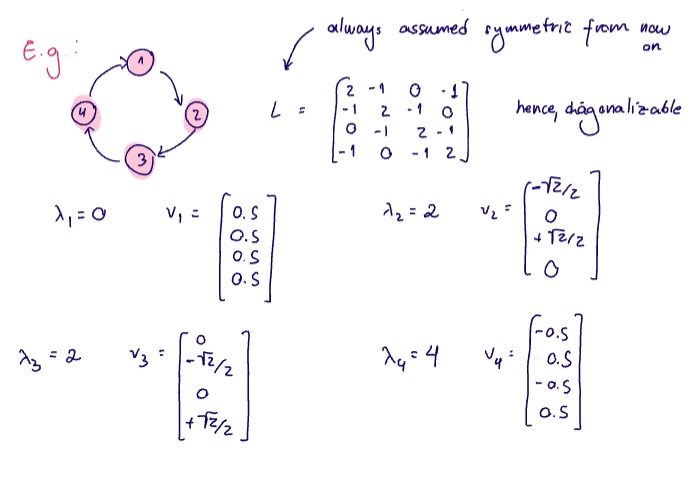 always assumed symmetric from now on
E.g:
1
4
2
3
L = [2 -1 0 -1
-1 2 -1 0
0 -1 2 -1
-1 0 -1 2]
hence, diagonalizable
λ₁ = 0 v₁ = [0.5 0.5 0.5 0.5]
λ₂ = 2 v₂ = [-√2/2 0 +√2/2 0]
λ₃ = 2 v₃ = [0 -√2/2 0 +√2/2]
λ₄ = 4 v₄ = [-0.5 0.5 -0.5 0.5]